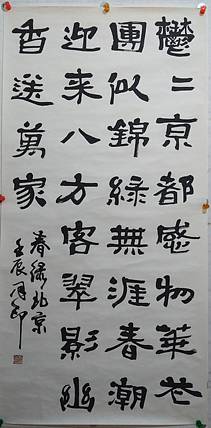 鬱二京都感物華花
團似錦綠無涯春潮
迎来八方客翠影幽
香送萬家
春绿北京
壬辰